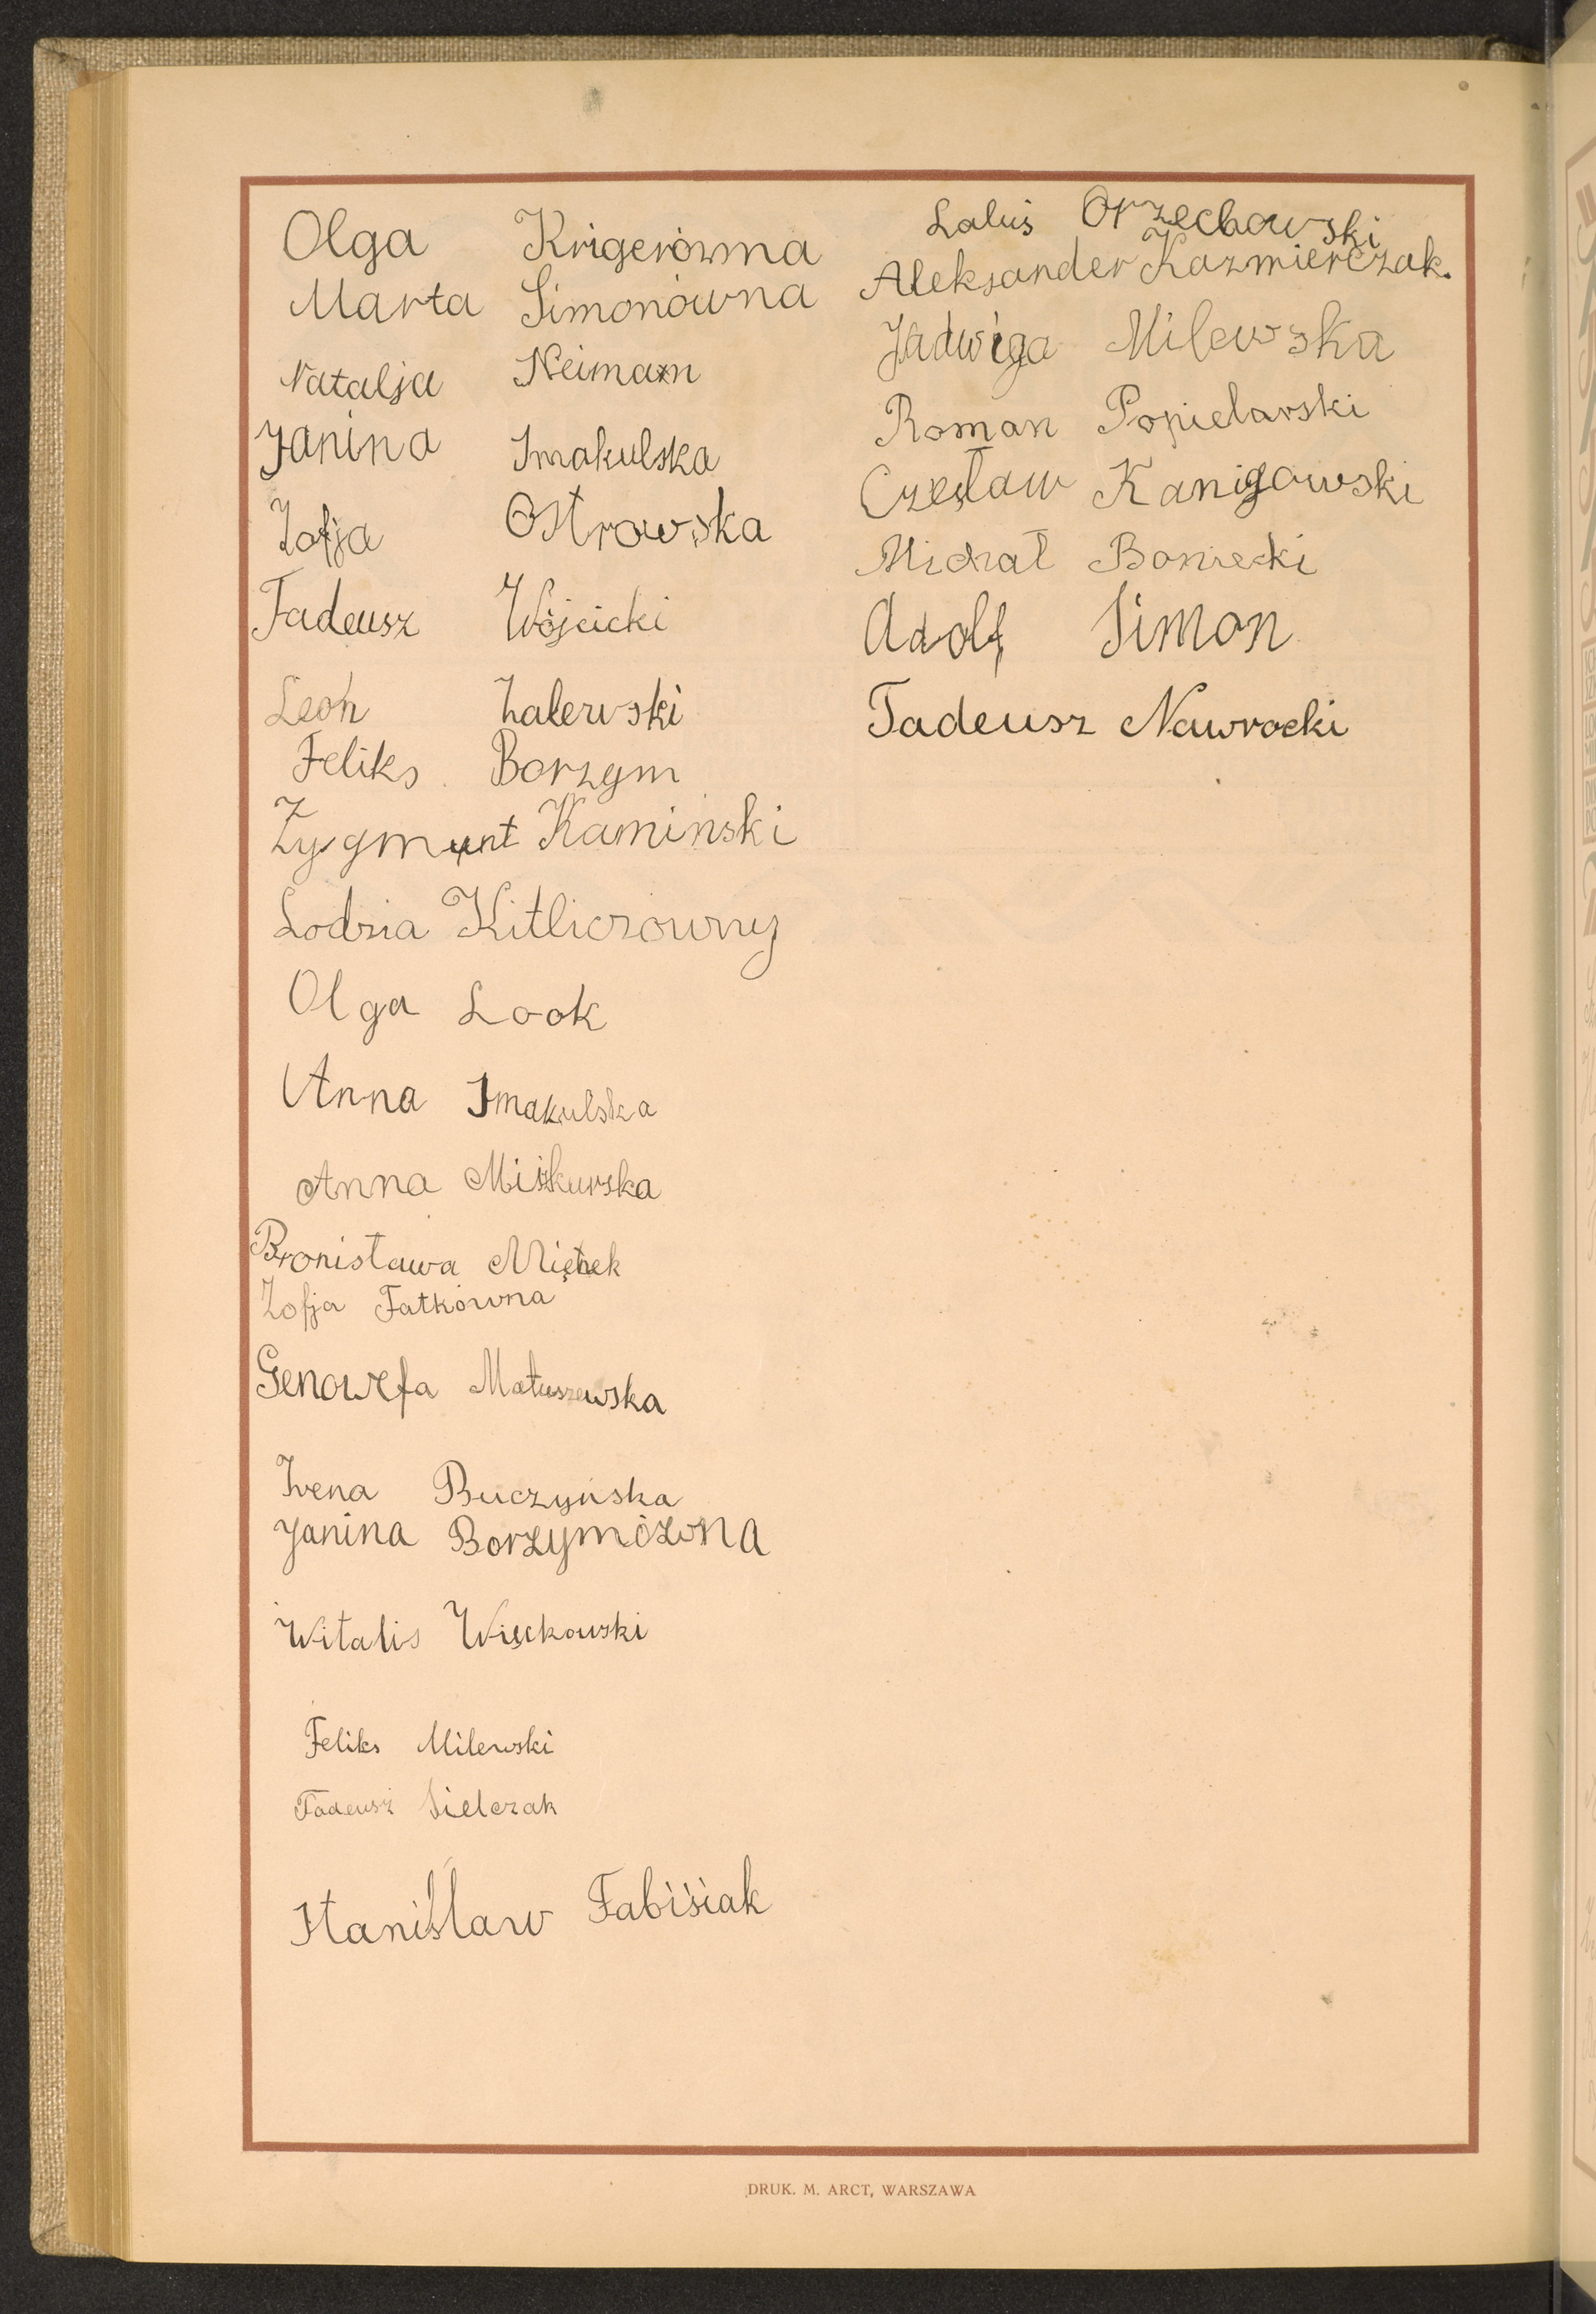 Olga Krigerówna
Marta Simonówna
Natalja Neiman
Janina Smakulska
Zofja Ostrowska
Tadeusz Wójcicki
Leon Zalewski
Feliks Borzym
Zygmunt Kamiński
Lodzia Kitliczowny
Olga Look
Anna Smakulska
Anna
Bronisława
Zofja Fatkówna
Genowefa Matuszewska
Irena Buczyńska
Janina Borzymówna
Witalis Więckowski
Feliks Milewski
Tadeusz Sielczak
Stanisław Fabisiak
Laluś Orzechowski
Aleksander Kazmierczak.
Jadwiga Milewska
Roman Popielarski
Czesław Kanigowski
Michał Boniecki
Adolf Simon
Tadeusz Nawrocki
DRUK. M. ARCT, WARSZAWA